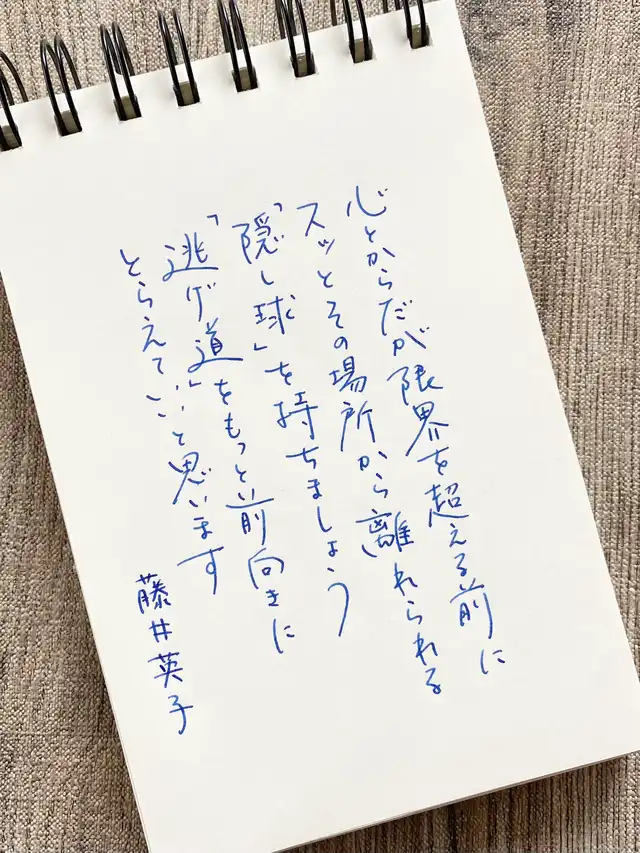 心とからだが限界を超える前に
スッとその場所から離れられる
「隠し球」を持ちましょう
「逃げ道」をもっと前向きに
とらえていいと思います
藤井英子